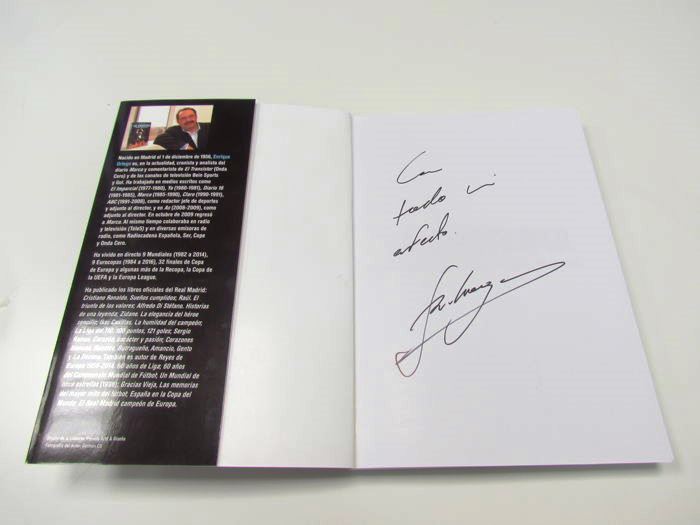 Nacido en Madrid el 1 de diciembre de 1956, Enrique
Ortego es, en la actualidad, cronista y analista del
diario Marca y comentarista de El Transistor (Onda
Cero) y de los canales de televisión Bein Sports
y Gol. Ha trabajado en medios escritos como
El Imparcial (1977-1980), Ya (1980-1981), Diario 16
(1981-1985), Marca (1985-1990), Claro (1990-1991),
ABC (1991-2008), como redactor jefe de deportes
y adjunto al director, y en As (2008-2009), como
adjunto al director. En octubre de 2009 regresó
a Marca. Al mismo tiempo colaboraba en radio
y televisión (Tele5) y en diversas emisoras de
radio, como Radiocadena Española, Ser, Cope
y Onda Cero.
Ha vivido en directo 9 Mundiales (1982 a 2014),
9 Eurocopas (1984 a 2016), 32 finales de Copa
de Europa y algunas más de la Recopa, la Copa de
la UEFA y la Europa League.
Ha publicado los libros oficiales del Real Madrid:
Cristiano Ronaldo. Sueños cumplidos; Raúl. El
triunfo de los valores; Alfredo Di Stéfano. Historias
de una leyenda; Zidane. La elegancia del héroe
sencillo; Iker Casillas. La humildad del campeón;
La Liga del 100 puntos, 121 goles; Sergio
Ramos. Corazón, carácter y pasión; Corazones
Butragueño, Amancio, Gento
y La Décima. También es autor de Reyes de
Europa 1956-2014, 60 años de Liga; 60 años
del Campeonato Mundial de Fútbol, Un Mundial de
once estrellas (1998); Gracias Vieja, Las memorias
del mayor mito del fútbol, España en la Copa del
Mundo, El Real Madrid campeón de Europa.
Diseño de la cubierta: & Diseño
Fotografía del autor:
Con
todo mi
afecto.